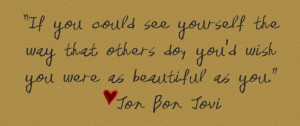 "If you could see yourself the
way that others do, you'd wish
you were as beautiful as you."
Jon Bon Jovi